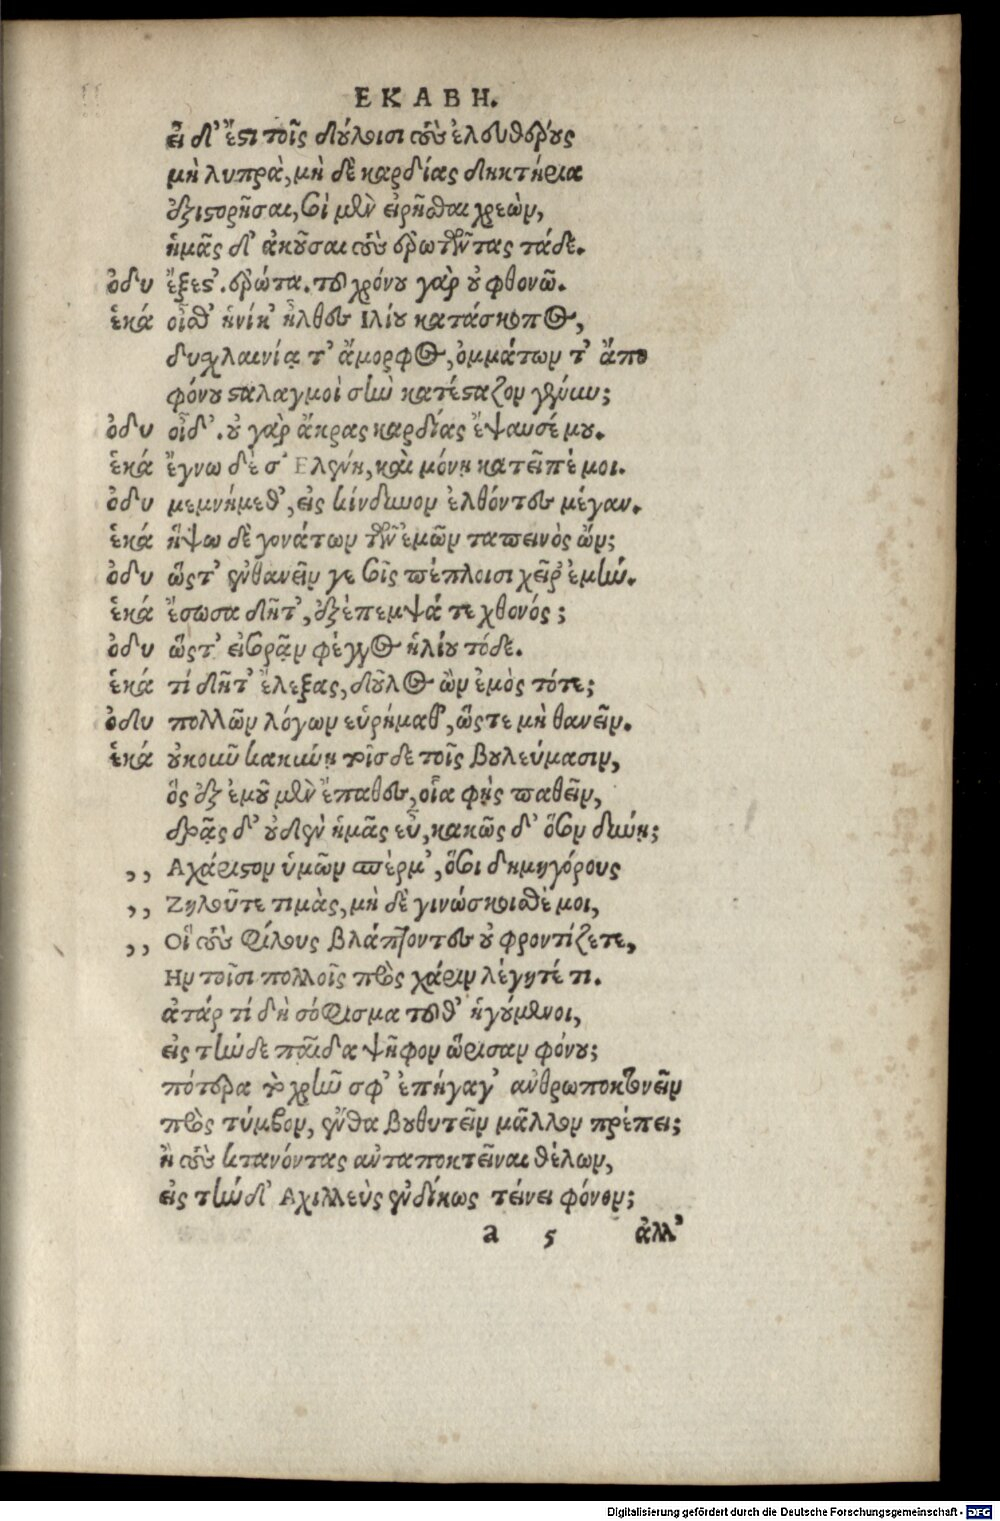 ΕΚΑΒΗ.
εἰ δ' ἔστι τοῖς δούλοισι τοὺς ἐλευθέρους
μὴ λυπρὰ, μὴ δὲ καρδίας δηκτήρια
ἐξιστορῆσαι, σοὶ μὲν εἰρῆσθαι χρεὼν,
ἡμᾶς δ' ἀκοῦσαι τοὺς ἐρωτῶντας τάδε.
ὀδυ ἔξεστ'. ἐρώτα. τοῦ χρόνου γὰρ οὐ φθονῶ.
ἑκά οἶσθ' ἡνίκ' ἦλθες Ιλίου κατάσκοπος,
δυσχλαινίᾳ τ' ἄμορφος, ὀμμάτων τ' ἄπο
φόνου σταλαγμοὶ σὴν κατέσταζον γένυν;
ὀδυ οἶδ'. οὐ γὰρ ἄκρας καρδίας ἔψαυσέ μου.
ἑκά ἔγνω δέ σ' Ελένη, καὶ μόνῃ κατεῖπέ μοι.
ὀδυ μεμνήμεθ', εἰς κίνδυνον ἐλθόντες μέγαν.
ἑκά ἥψω δὲ γονάτων τῶν ἐμῶν ταπεινὸς ὤν;
ὀδυ ὥστ' ἐνθανεῖν γε σοῖς πέπλοισι χεῖρ' ἐμήν.
ἑκά ἔσωσα δῆτ', ἐξέπεμψά τε χθονός;
ὀδυ ὥστ' εἰσορᾷν φέγγος ἡλίου τόδε.
ἑκά τί δῆτ' ἔλεξας, δοῦλος ὢν ἐμὸς τότε;
ὀδυ πολλῶν λόγων εὑρήμαθ', ὥστε μὴ θανεῖν.
ἑκά οὐκοῦν κακύνῃ τοῖσδε τοῖς βουλεύμασιν,
ὃς ἐξ ἐμοῦ μὲν ἔπαθες, οἷα φῂς παθεῖν,
δρᾷς δ' οὐδὲν ἡμᾶς εὖ, κακῶς δ' ὅσον δύνῃ;
,, Αχάριστον ὑμῶν σπέρμ', ὅσοι δημηγόρους
,, Ζηλοῦτε τιμὰς, μὴ δὲ γινώσκοισθέ μοι,
,, Οἳ τοὺς φίλους βλάπτοντες οὐ φροντίζετε,
Ην τοῖσι πολλοῖς πρὸς χάριν λέγητέ τι.
ἀτάρ τί δὴ σόφισμα τοῦθ' ἡγούμενοι,
εἰς τήνδε παῖδα ψῆφον ὥρισαν φόνου;
πότερα τὸ χρῆν σφ' ἐπήγαγ' ἀνθρωποκτονεῖν
πρὸς τύμβον, ἔνθα βουθυτεῖν μᾶλλον πρέπει;
ἢ τοὺς κτανόντας ἀνταποκτεῖναι θέλων,
εἰς τήνδ' Αχιλλεὺς ἐνδίκως τείνει φόνον;
a 5 ἀλλ'
Digitalisierung gefördert durch die Deutsche Forschungsgemeinschaft - DFG